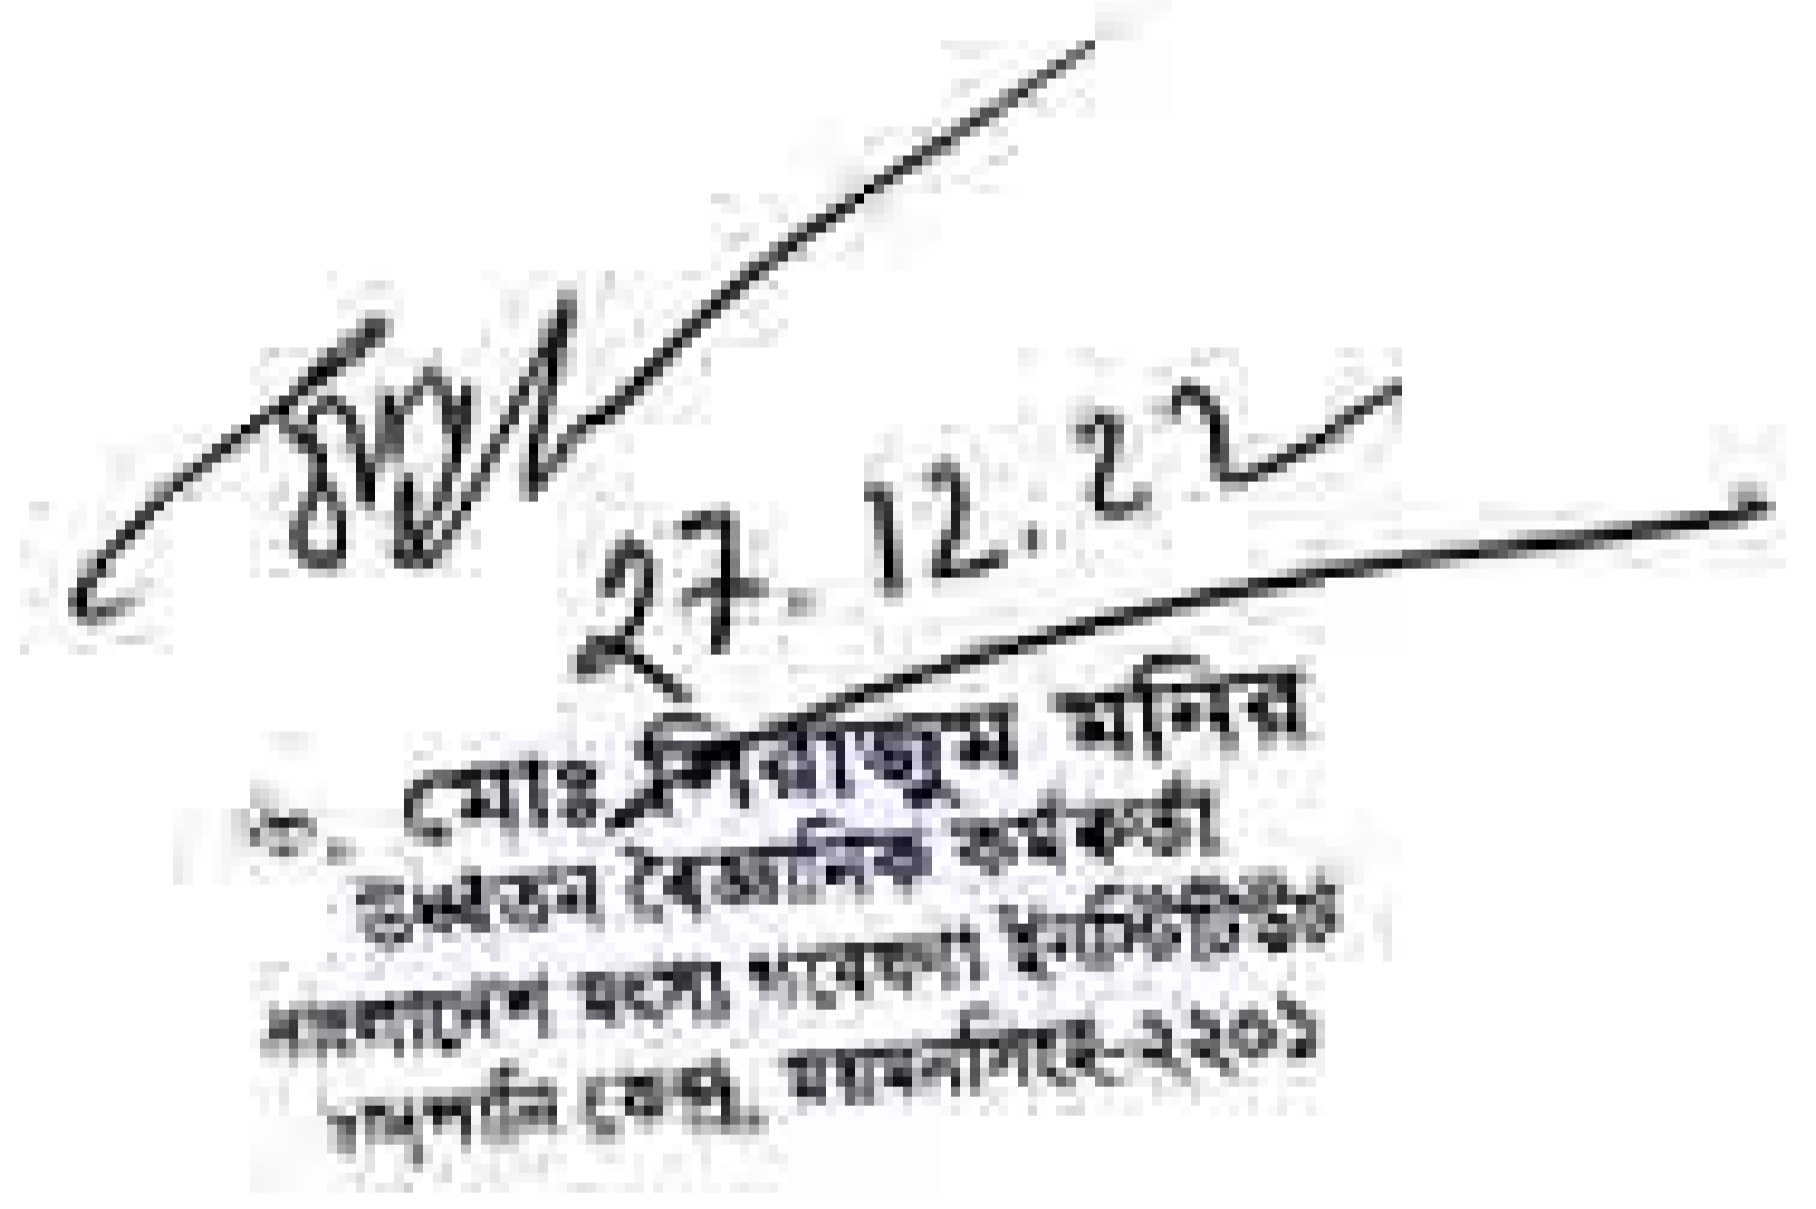 27.12.22
ড. মোঃ সিরাজুম মনির
উর্ধ্বতন বৈজ্ঞানিক কর্মকর্তা
বাংলাদেশ মৎস্য গবেষণা ইনস্টিটিউট
স্বাদুপানি কেন্দ্র, ময়মনসিংহ-২২০১